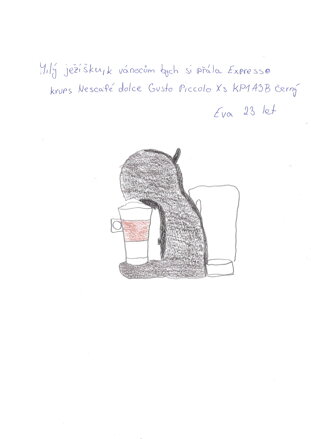 Milý ježíšku, k vánocům bych si přála Expresso
krups Nescafé dolce Gusto Piccolo Xs KP1A3B černý
Eva 23 let